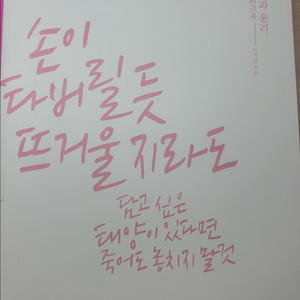 손이
다버릴 듯
뜨거울 지라도
담고 싶은
태양이 있다면
죽어도 놓치지 말 것
과 윤리